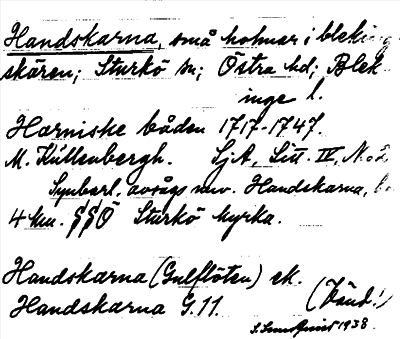 Handskarna, små holmar i bleking
skären; Sturkö sn; Östra hd; Blek
inge l.
Harniske båden 1717-1747.
M. Kullenbergh. LjA, Litt. IV, No 2
Synbarl. avsågs nuv. Handskarna,
4 km. §§Ö Sturkö kyrka.
Handskarna (Gulflöten) ek.
Handskarna G.11. (Vänd!)
1938.